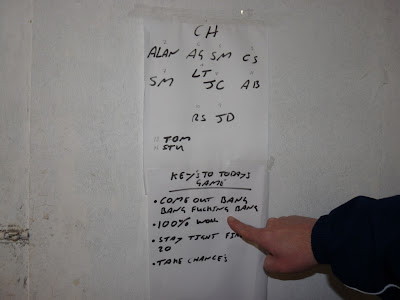 CH
ALAN AG SM CS
SM LT JC AB
RS JD
TOM
STU
KEY'S TO TODAYS
GAME
• COME OUT BANG
BANG FUCKING BANG
• 100% WORK
• STAY TIGHT FIRST
20
• TAKE CHANCE'S